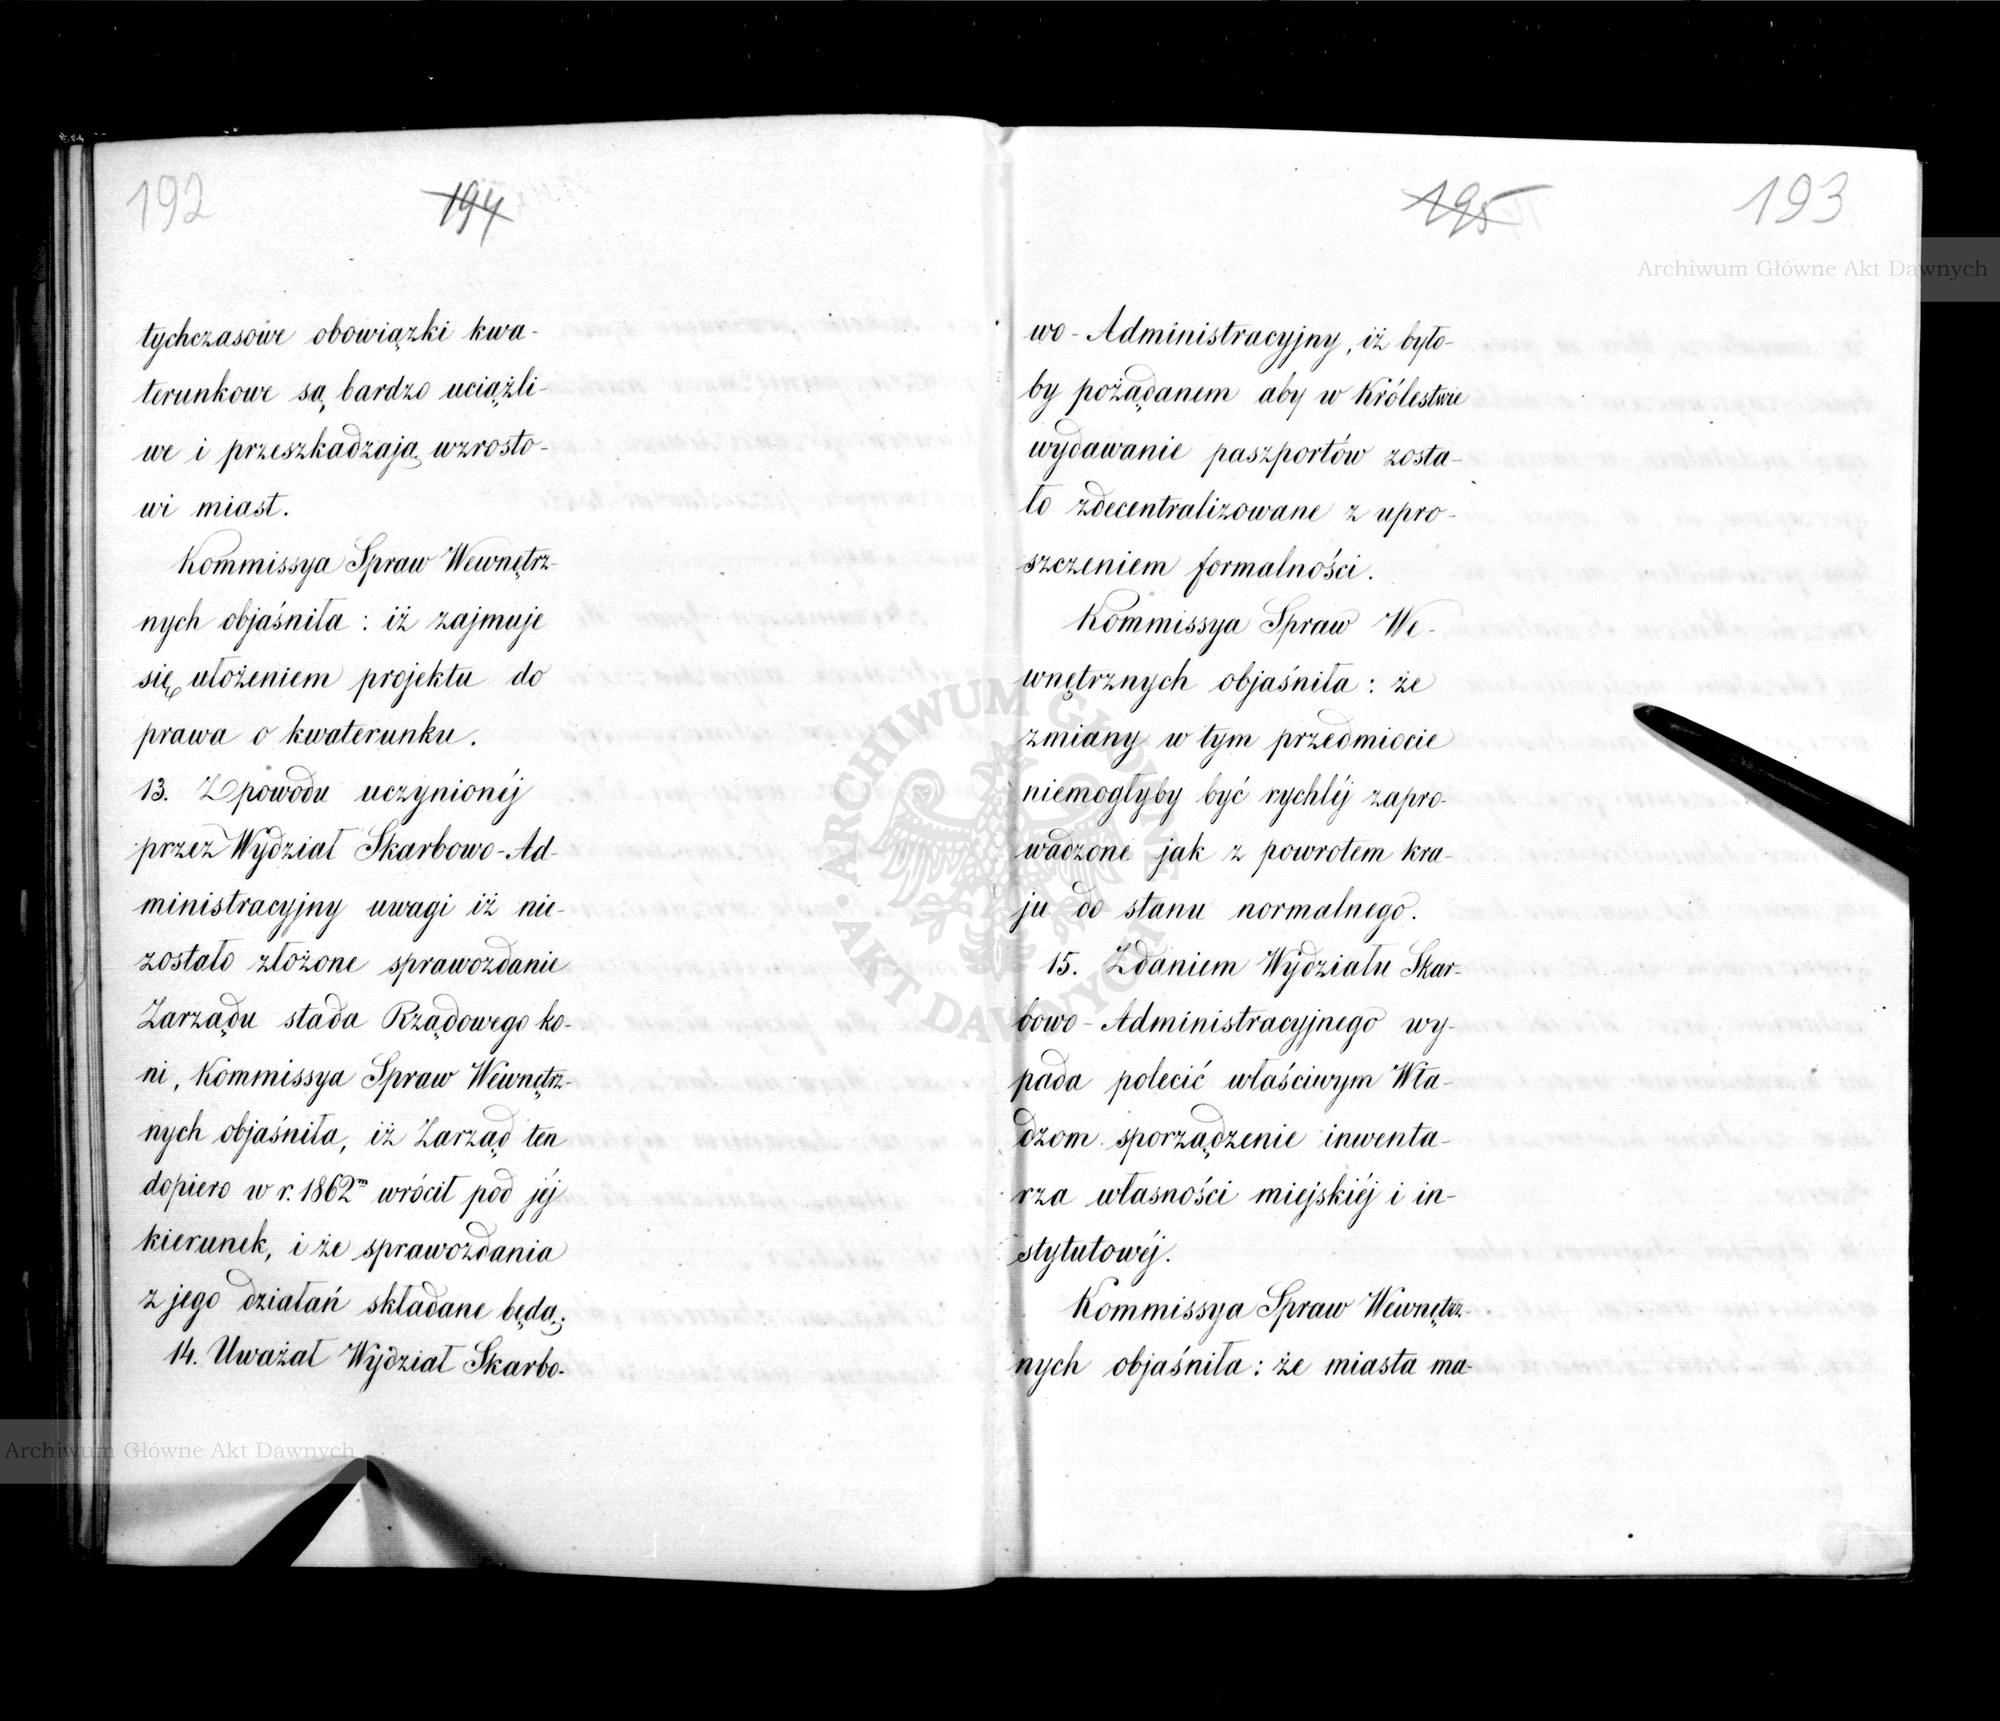 192
194
tychczasowe obowiązki kwa-
terunkowe są bardzo uciążli-
we i przeszkadzają wzrosto-
wi miast.
Kommissya Spraw Wewnętrz-
nych objaśniła : iż zajmuje
się ułożeniem projektu do
prawa o kwaterunku.
13. Z powodu uczynionéj
przez Wydział Skarbowo-Ad-
ministracyjny uwagi iż nie-
zostało złożone sprawozdanie
Zarządu stada Rządowego ko-
ni, Kommissya Spraw Wewnętrz-
nych objaśniła, iż Zarząd ten
dopiero w r. 1862m wrócił pod jéj
kierunek, i że sprawozdania
z jego działań składane będą.
14. Uważał Wydział Skarbo-
195
193
Archiwum Główne Akt Dawnych
wo-Administracyjny, iż było-
by pożądanem aby w Królestwie
wydawanie paszportów zosta-
ło zdecentralizowane z upro-
szczeniem formalności.
Kommissya Spraw We-
wnętrznych objaśniła : że
zmiany w tym przedmiocie
niemogłyby być rychléj zapro-
wadzone jak z powrotem kra-
ju do stanu normalnego.
15. Zdaniem Wydziału Skar-
bowo-Administracyjnego wy-
pada polecić właściwym Wła-
dzom sporządzenie inwenta-
rza własności miejskiéj i in-
stytutowéj.
Kommissya Spraw Wewnętrz-
nych objaśniła : że miasta ma-
ARCHIWUM GŁÓWNE AKT DAWNYCH
Archiwum Główne Akt Dawnych